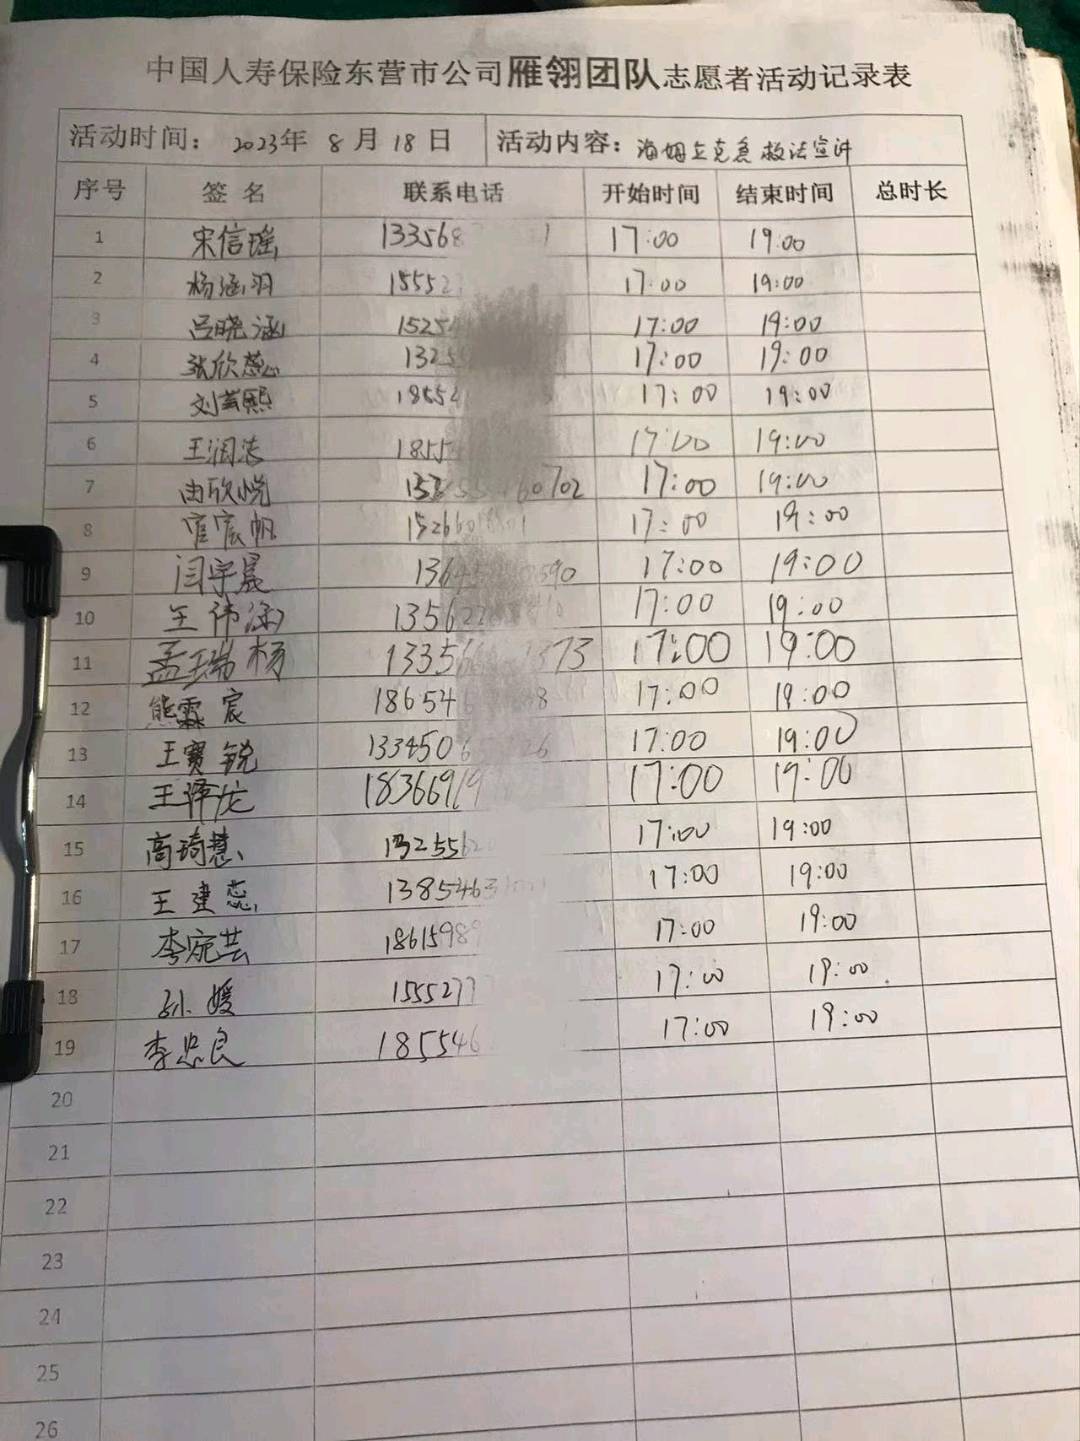 中国人寿保险东营市公司雁翎团队志愿者活动记录表
活动时间: 2023年 8月 18日 活动内容: 海姆立克急救法宣讲
序号 签名 联系电话 开始时间 结束时间 总时长
1 宋信瑶 133568 1 17:00 19:00
2 杨涵羽 15552 17:00 19:00
3 吕晓涵 1525 17:00 19:00
4 张欣蕊 1325 17:00 19:00
5 刘芸熙 1855 17:00 19:00
6 王润浩 1855 17:00 19:00
7 由欣悦 702 17:00 19:00
8 帆 15266 17:00 19:00
9 闫宇晟 136 590 17:00 19:00
10 王伟 13562 17:00 19:00
11 孟瑞杨 1335 373 17:00 19:00
12 熊霖宸 186546 8 17:00 19:00
13 王赛锐 1334506 26 17:00 19:00
14 王泽龙 18366919 17:00 19:00
15 高琦慧 132556 17:00 19:00
16 王建蕊 1385463 17:00 19:00
17 李宛芸 18615989 17:00 19:00
18 孙媛 1555277 17:00 19:00
19 李忠良 185546 17:00 19:00
20
21
22
23
24
25
26